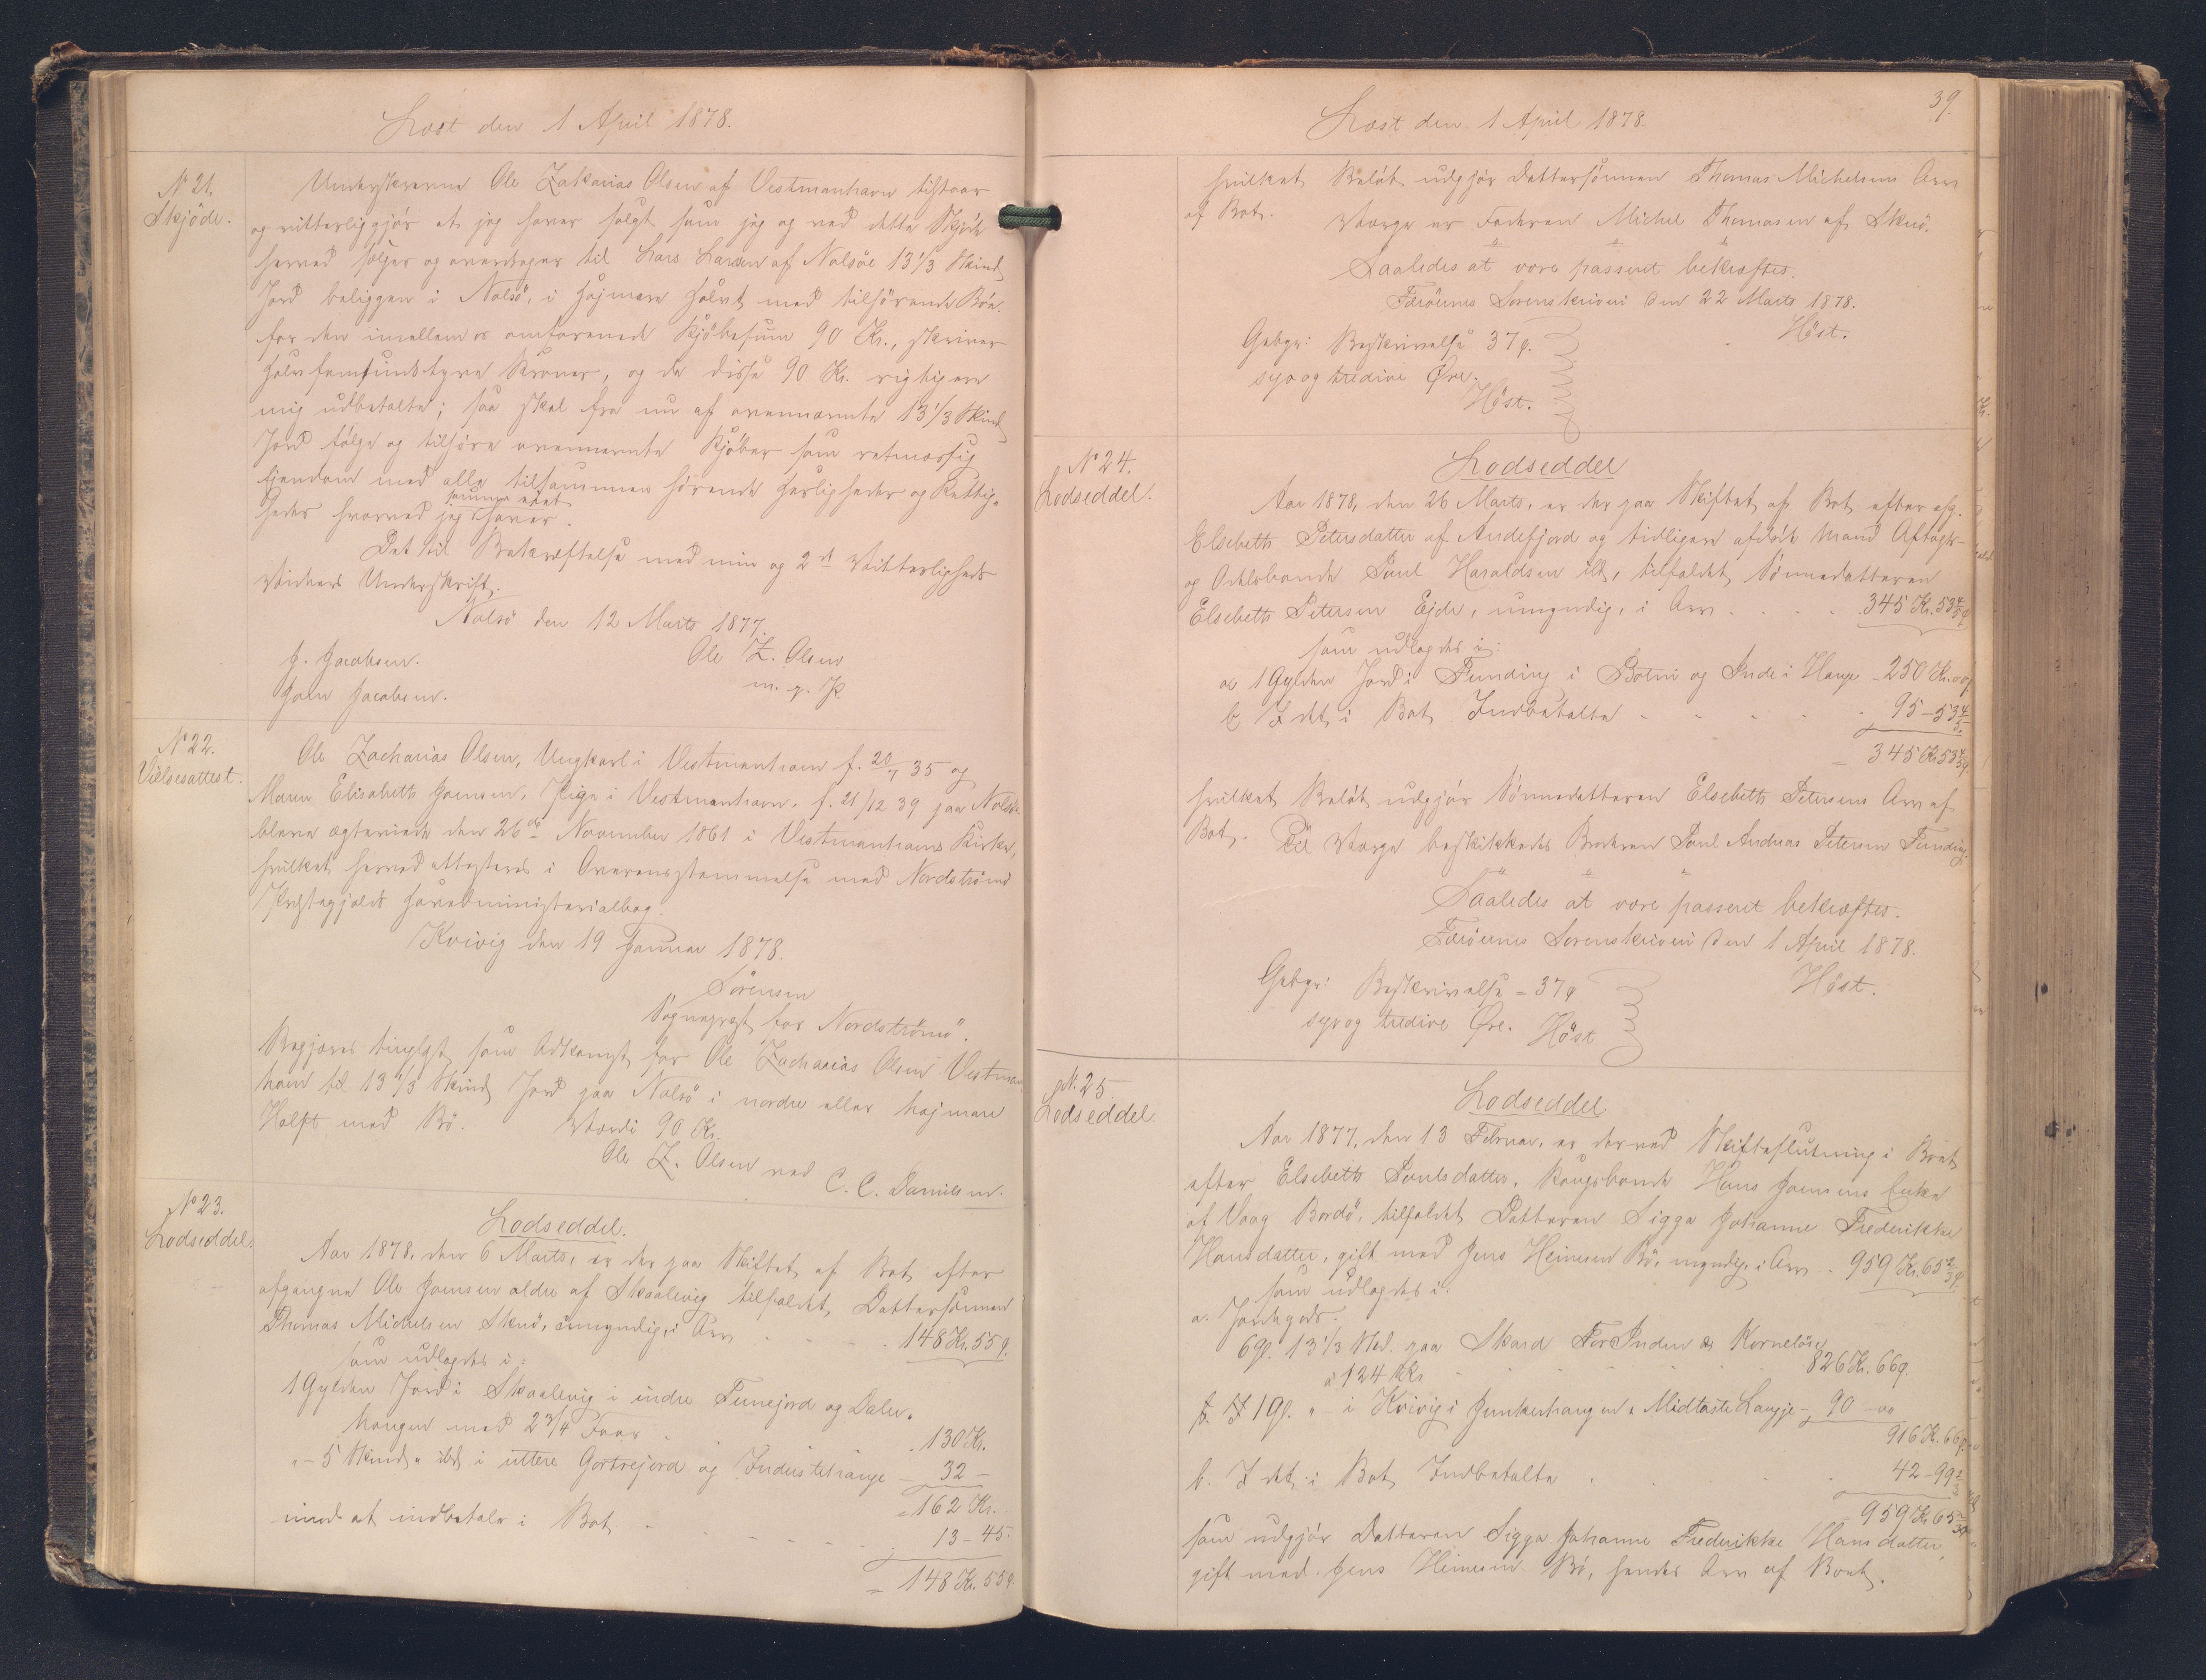 Læst den 1 April 1878.
N 21.
Skjöde.
Underskrevne Ole Zakarias Olsen af Vestmanhavn tilstaar
og vitterliggjör at jeg haver solgt som jeg og ved dette Skjöde
herved sælger og overdrager til Lars Larsen af Nolsöe 13 1/3 Skind
Jord beliggen i Nolsö, i Højmare Hålvt med tilhörende Böe.
for den imellem os omforenede Kjöbesum 90 Kr., skriver
halvfemsindstyve Kroner, og da disse 90 Kr. rigtig ere
mig udbetalte; saa skal fra nu af ovennævnte 13 1/3 Skind
Jord fölge og tilhöre ovennævnte Kjöber som retmæssig
Ejendom med alle tilsammen hörende Herligheder og Rettig-
heder hvorved jeg samme eiet haver.
Det til Bekræftelse med min og 2de Vitterligheds
Vidners Underskrift.
Nolsö den 12 Marts 1877.
J. Jacobsen. Ole Z. Olsen
Joen Jacobsen. m. p. P.
No 22.
Vielsesattest.
Ole Zacharias Olsen, Ungkarl i Vestmanhavn f. 20/7 35 og
Maren Elisabeth Joensen, Pige i Vestmanhavn, f. 21/12 39 paa Nolsö
bleve ægteviede den 26de November 1861 i Vestmanhavns Kirke,
hvilket herved attesteres i Overensstemmelse med Nordströmö
Præstegjelds Hovedministerialbog.
Kvivig den 19 Januar 1878.
Sörensen
Sognepræst for Nordströmö.
Begjæres tinglæst som Adkomst for Ole Zacharias Olsen Vestman
havn til 13 1/3 Skind Jord paa Nolsö i nordre eller højmare
Halft med Bö. Værdi 90 Kr.
Ole Z. Olsen ved C. C. Danielsen.
No 23.
Lodseddel.
Lodseddel.
Aar 1878, den 6 Marts, er der paa Skiftet af Boet efter
afgangne Ole Joensen ældre af Skaalevig tilfaldet Dattersönnen
Thomas Michelsen Skuö, umyndig, i Arv . . . 148 Kr. 55 ø.
som udlagdes i:
1 Gylden Jord i Skaalevig i indre Tunejord og Dalen.
haugen med 2 3/4 Faar . . 130 Kr.
" – 5 Skind " ibd i uttere Gortrejord og Inderstehauge – 32 –
162 Kr.
imod at indbetale i Boet . . . 13 – 45.
= 148 Kr. 55 ø.
39.
Læst den 1 April 1878.
hvilket Beløb udgjör Dattersönnen Thomas Michelsens Arv
af Boet. Værge er Faderen Michel Thomasen af Skuö.
Saaledes at være passeret bekræftes.
Færöernes Sorenskriveri den 22 Marts 1878.
Höst.
Gebyr: Beskrivelse 37 ø.
syv og tredive Øre.
Höst.
No 24.
Lodseddel.
Lodseddel
Aar 1878, den 26 Marts, er der paa Skiftet af Boet efter afg.
Elsebeth Petersdatter af Andefjord og tidligere afdöde Mand Aftægts-
og Odelsbonde Poul Haraldsen ibd, tilfaldet Sönnedatteren
Elsebeth Petersen Ejde, umyndig, i Arv . . . 345 Kr. 53 4/5 ø
som udlagdes i:
a 1 Gylden Jord i Funding i Botni og Inde i Hauge – 250 Kr. 00 ø
b I det i Boet Indbetalte . . . 95 – 53 4/5.
= 345 Kr. 53 4/5 ø.
hvilket Beløb udgjör Sönnedatteren Elsebeth Petersens Arv af
Boet. Til Værge beskikkedes Broderen Poul Andreas Petersen Funding.
Saaledes at være passeret bekræftes.
Færöernes Sorenskriveri den 1 April 1878.
Höst.
Gebyr: Beskrivelse = 37 ø
syv og tredive Öre. Höst
N. 25.
Lodseddel.
Lodseddel
Aar 1877, den 13 Februar, er der ved Skifteslutning i Boet
efter Elsebeth Poulsdatter, Kongsbonde Hans Joensens Enke
af Vaag Bordö, tilfaldet Datteren Sigga Johanne Frederikke
Hansdatter, gift med Jens Heinesen Bö, myndig i Arv . 959 Kr. 65 2/3 ø.
som udlagdes i:
a. Jordegods.
6 Gl. 13 1/3 Skd. paa Skard For Inden & Korneløse
à 124 Kr . . . 826 Kr. 66 ø.
1 Gl. " – i Kvivig i Junkerhaugen & Midtaste Laugje – 90 – 00
916 Kr. 66 ø.
b. I det i Boet Indbetalte . . . 42 – 99 2/3
959 Kr. 65 2/3 ø
som udgjör Datteren Sigga Johanne Frederikke Hansdatter,
gift med Jens Heinesen Bö, hendes Arv af Boet.